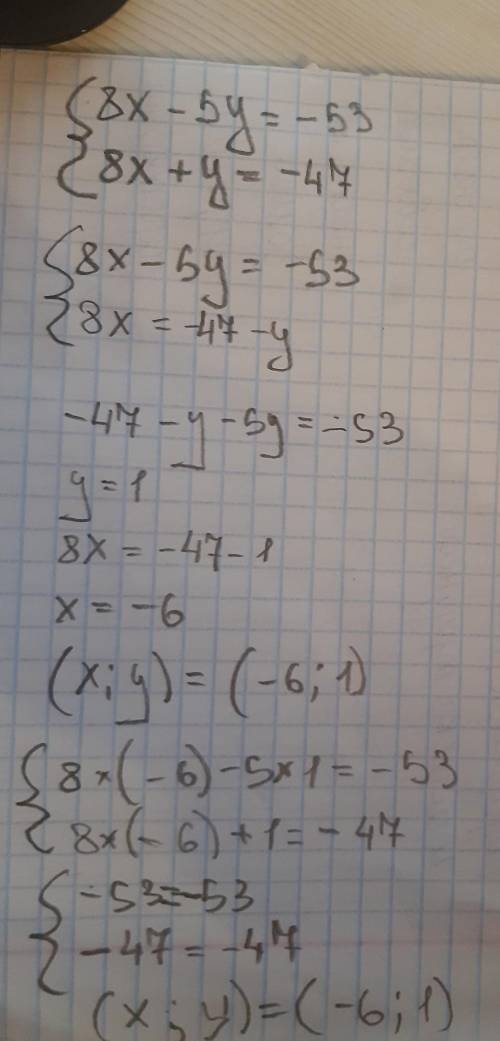 {8x - 5y = -53
8x + y = -47
{8x - 5y = -53
8x = -47 - y
-47 - y - 5y = -53
y = 1
8x = -47 - 1
x = -6
(x; y) = (-6; 1)
{8×(-6) - 5×1 = -53
8×(-6) + 1 = -47
{-53 = -53
-47 = -47
(x; y) = (-6; 1)